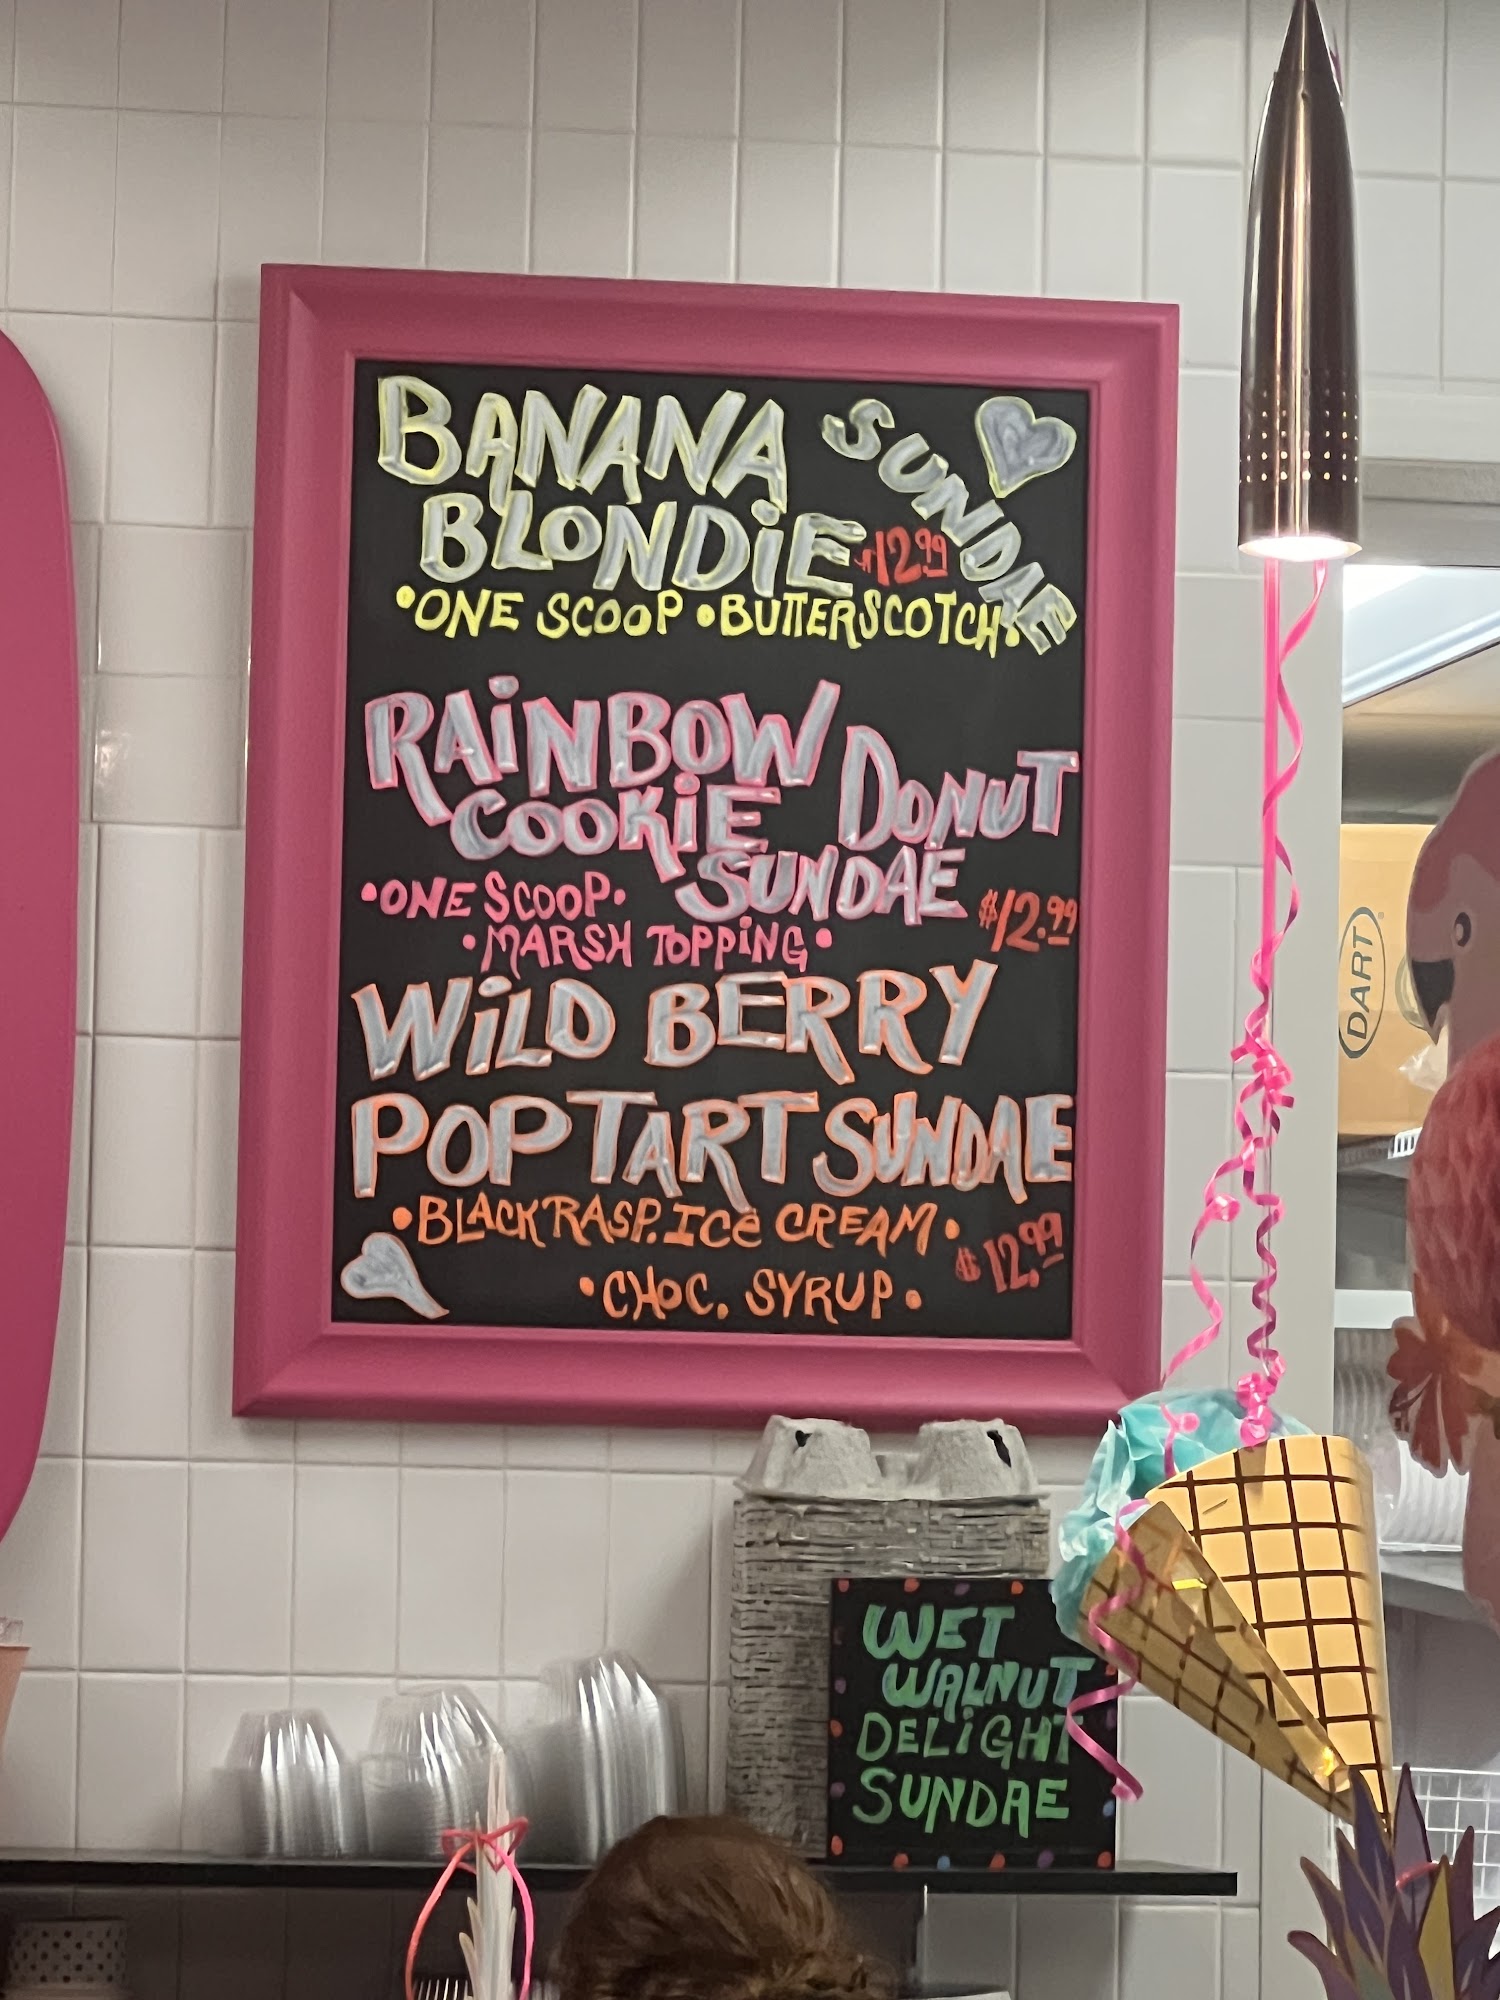 BANANA SUNDAE
BLONDiE $12.99
•ONE SCOOP •BUTTERSCOTCH•
RAiNBOW
COOKiE DONUT
SUNDAE
•ONE SCOOP•
$12.99
•MARSH TOPPiNG•
WiLD BERRY
POPTART SUNDAE
•BLACK RASP. ICe CREAM•
$12.99
•CHOC. SYRUP•
DART
WET
WALNUT
DELiGHT
SUNDAE